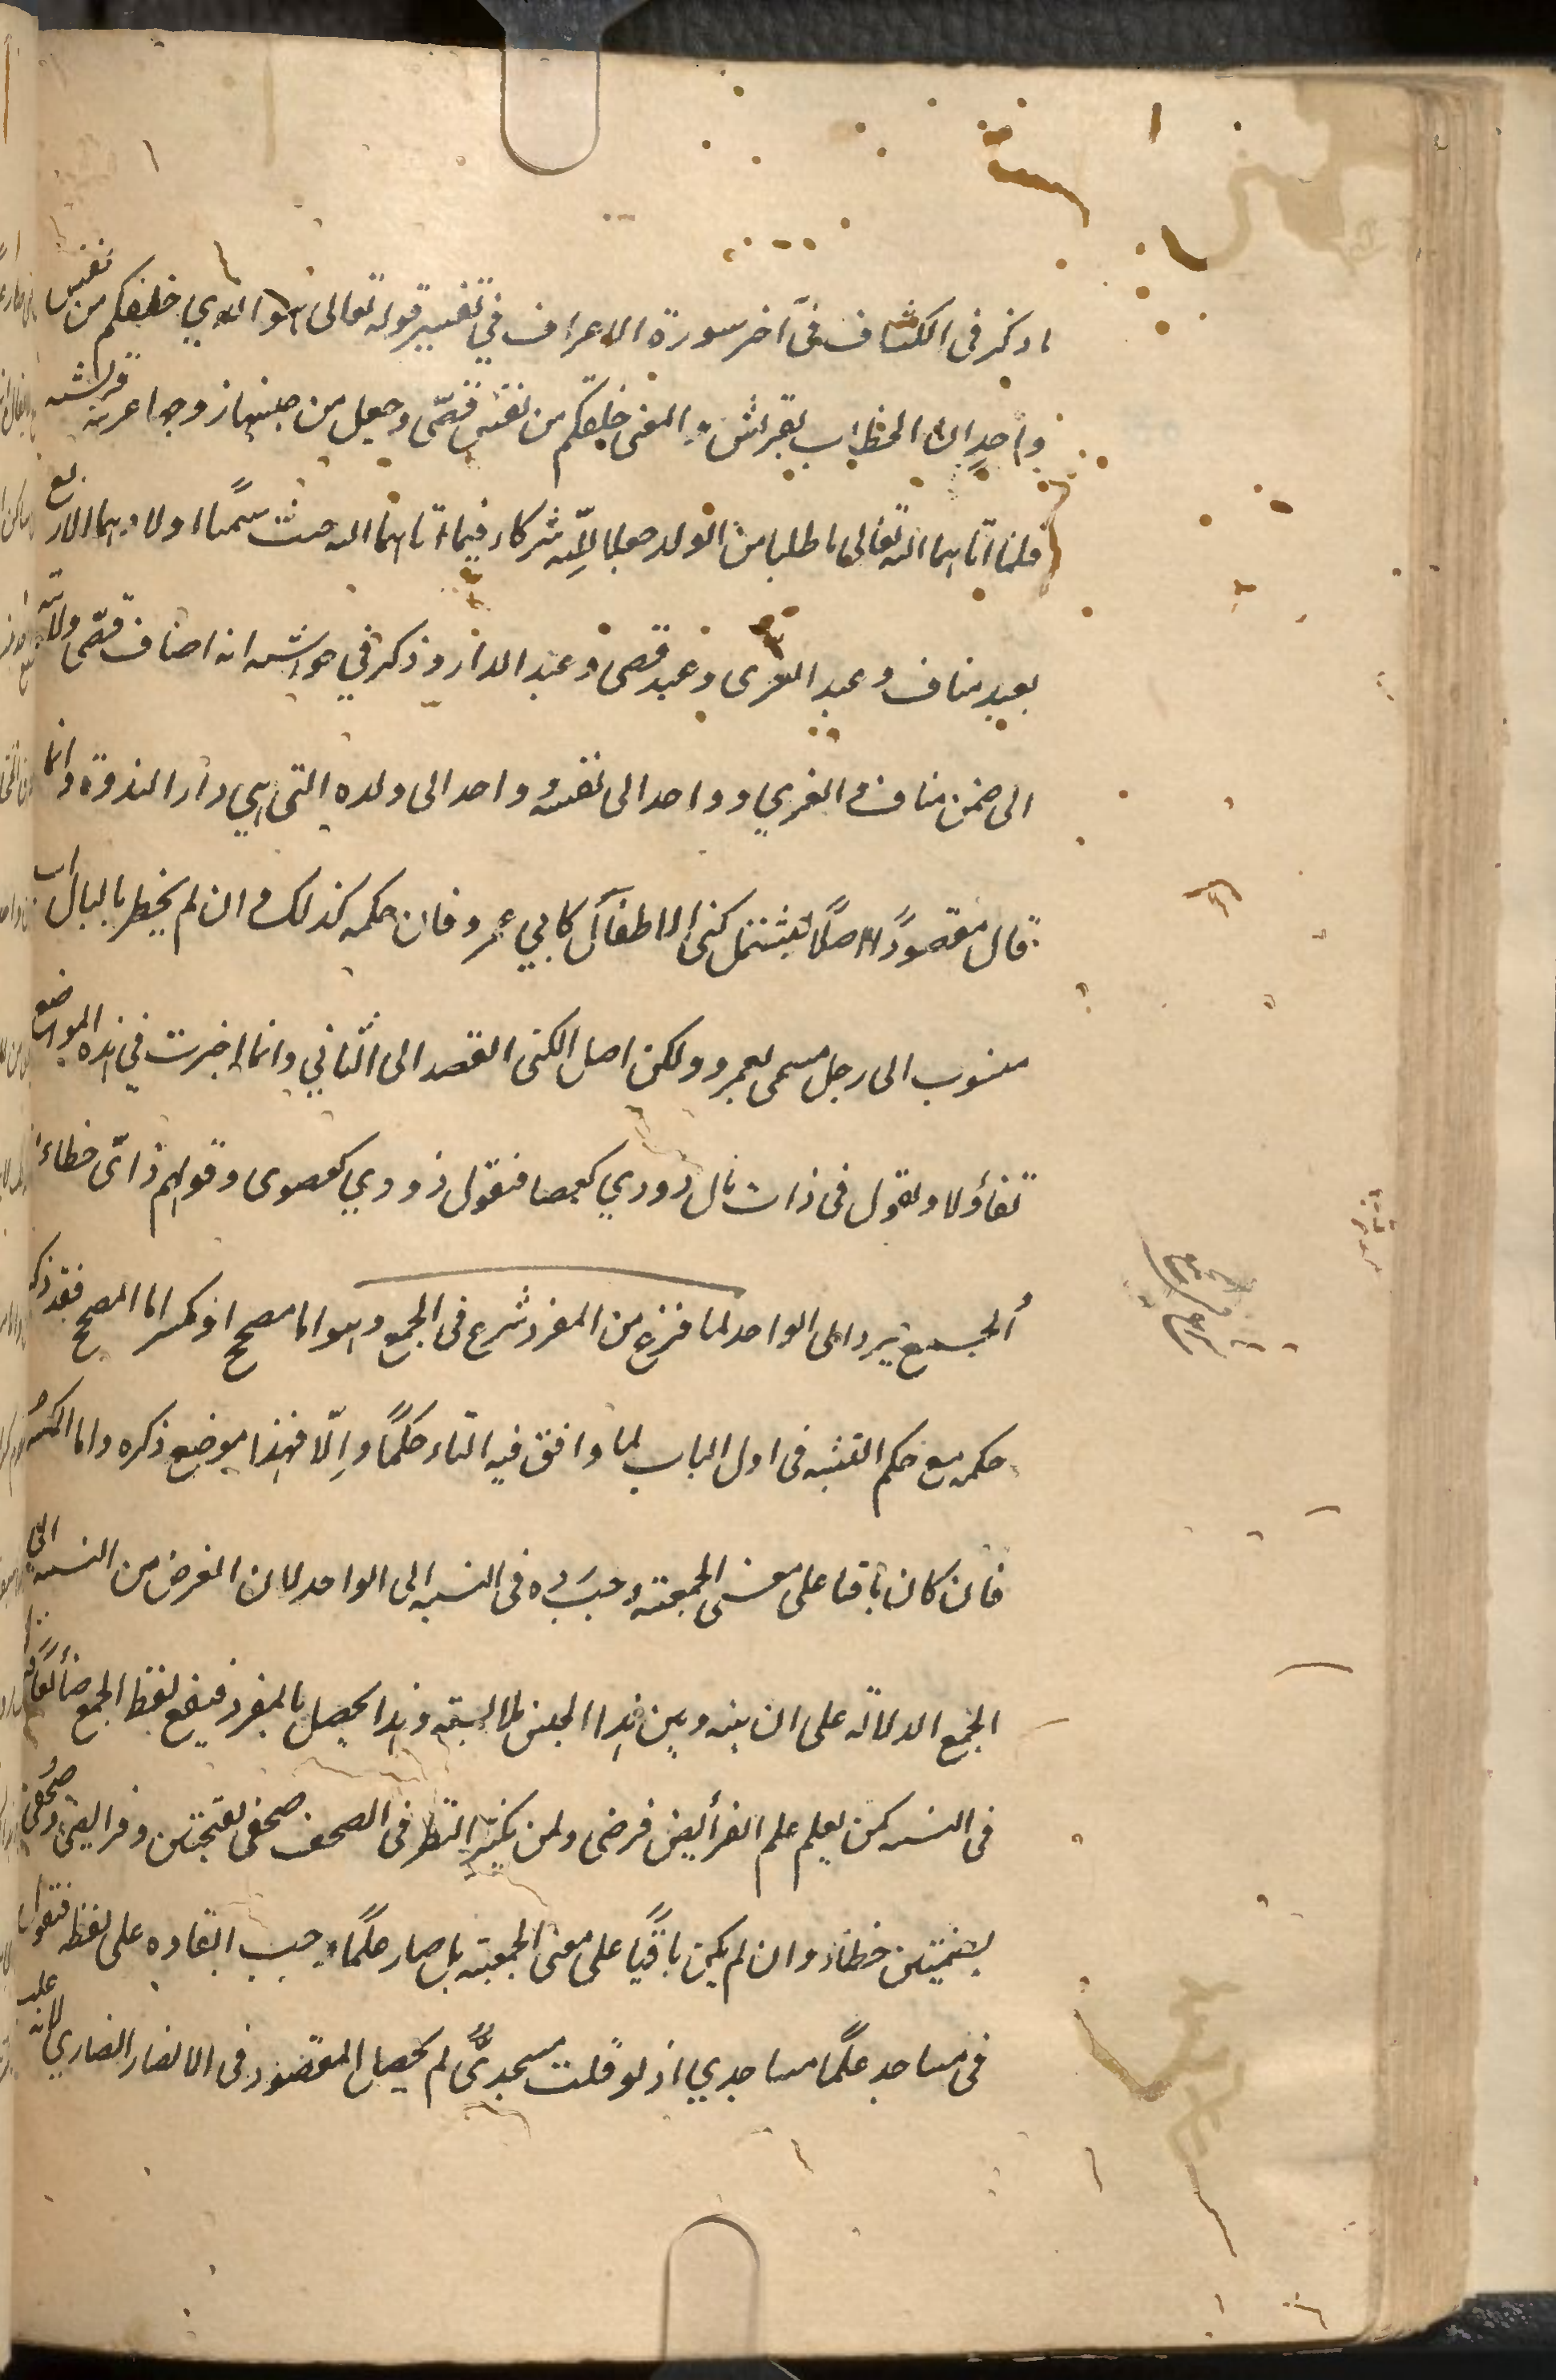 ما ذكر فى الكشاف فى آخر سورة الاعراف في تفسير قوله تعالى هو الذي خلقكم من نفس
واحدة ان الخطاب لقريش و المعنى خلقكم من نفس قصّى وجعل من جنسها زوجها عربية قرشية
فلما اتاهما الله تعالى ما طلبا من الولد جعلا لِلّه شركاء فيما اتاهما الله حيث سمّيا اولادهما الاربع
بعبد مناف وعبد العزى وعبد قصى وعبد الدار وذكر في حواشيه انه اضاف قصّى ولديه
الى صنمين مناف والعزي وواحدا الى نفسه وواحدا الى ولده التى هي دار الندوة وانما
قال مقصودًا اصلًا ليشتمل كنى الاطفال كابي عمرو فان حكمه كذلك وان لم يخطر بالبال اب
منسوب الى رجل مسمى بعمرو ولكن اصل الكنى القصد الى الثاني وانما اجريت في هذه المواضع
تفاؤلا وتقول فى ذات مال ذووي كعصا فتقول ذووي كعصوى وقولهم ذاتّى خطاء
الجمع يرد الى الواحد لما فرغ من المفرد شرع فى الجمع وهو اما مصحح او مكسر اما المصحح فقد ذكر
حكمه مع حكم التثنية فى اول الباب لما وافق فيه التاء حكمًا والّا فهذا موضع ذكره واما المكسر
فان كان باقيا على معنى الجمعية وجب رده فى النسبة الى الواحد لان الغرض من النسبة الى
الجمع الدلالة على ان بينه وبين هذا الجنس ملابسة وهذا يحصل بالمفرد فيقع لفظ الجمع ضائعًا
فى النسبة كمن يعلم علم الفرائض فرضى ولمن يكثر النظر فى الصحف صحفى بفتحتين وفرائضى وصُحُفى
بضمتين خطاء وان لم يكن باقيًا على معنى الجمعية بل صار علمًا وجب ابقاءه على لفظه فتقول
فى مساجد علمًا مساجدي اذ لو قلت مسجديٌّ لم يحصل المقصود وفى الانصار انصاري لانه علب